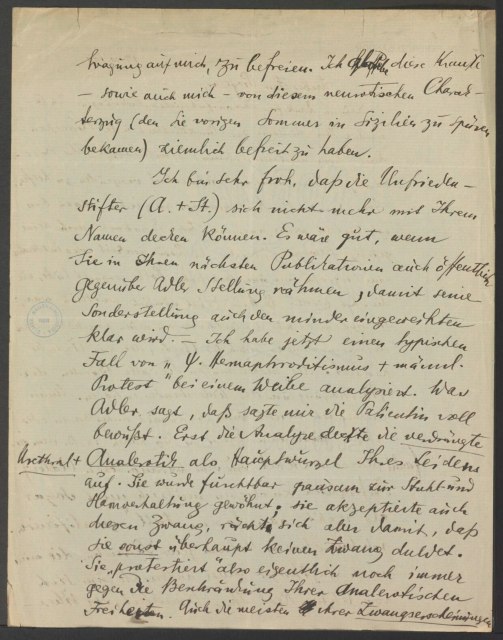 tragung auf mich, zu befreien. Ich diese Kranke
– sowie auch mich – von diesem neurotischen Charak-
terzug (den Sie vorigen Sommer in Sizilien zu spüren
bekamen) ziemlich befreit zu haben.
Ich bin sehr froh, daß die Unfrieden-
stifter (A. + St.) sich nicht mehr mit Ihrem
Namen decken können. Es wäre gut, wenn
Sie in Ihren nächsten Publikationen auch öffentlich
gegenüber Adler Stellung nähmen, damit seine
Sonderstellung auch den minder eingeweihten
klar wird. – Ich habe jetzt einen typischen
Fall von „ψ. Hermaphroditismus + männl.
Protest" bei einem Weibe analysiert. Was
Adler sagt, daß sagte mir die Patientin voll
bewußt. Erst die Analyse deckte die verdrängte
Urethral+ Analerotik als Hauptwurzel Ihres Leidens
auf. Sie wurde furchtbar grausam zur Stuhl und
Harnverhaltung gewöhnt; sie akzeptierte auch
diesen Zwang, rächte sich aber damit, daß
sie sonst überhaupt keinen Zwang duldet.
Sie „protestiert" also eigentlich noch immer
gegen die Beschränkung Ihrer Analerotischen
Freiheiten. Auch die meisten ihrer Zwangserscheinungen